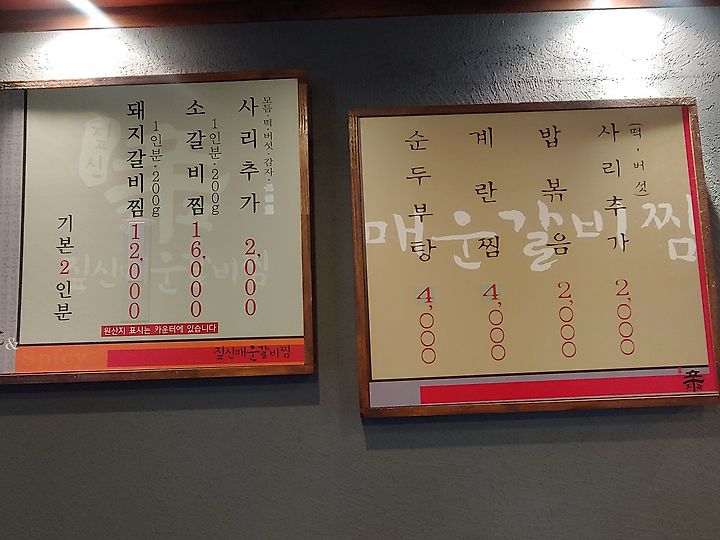 기본 2인분
돼지갈비찜 12,000
1인분·200g
소갈비찜 16,000
1인분·200g
사리추가 2,000
모듬·떡·버섯·감자·
원산지 표시는 카운터에 있습니다
짚신매운갈비찜
짚신
짚신매운갈비찜
&
Spicy
순두부탕 4,000
계란찜 4,000
밥볶음 2,000
사리추가 2,000
(떡·버섯)
매운갈비찜